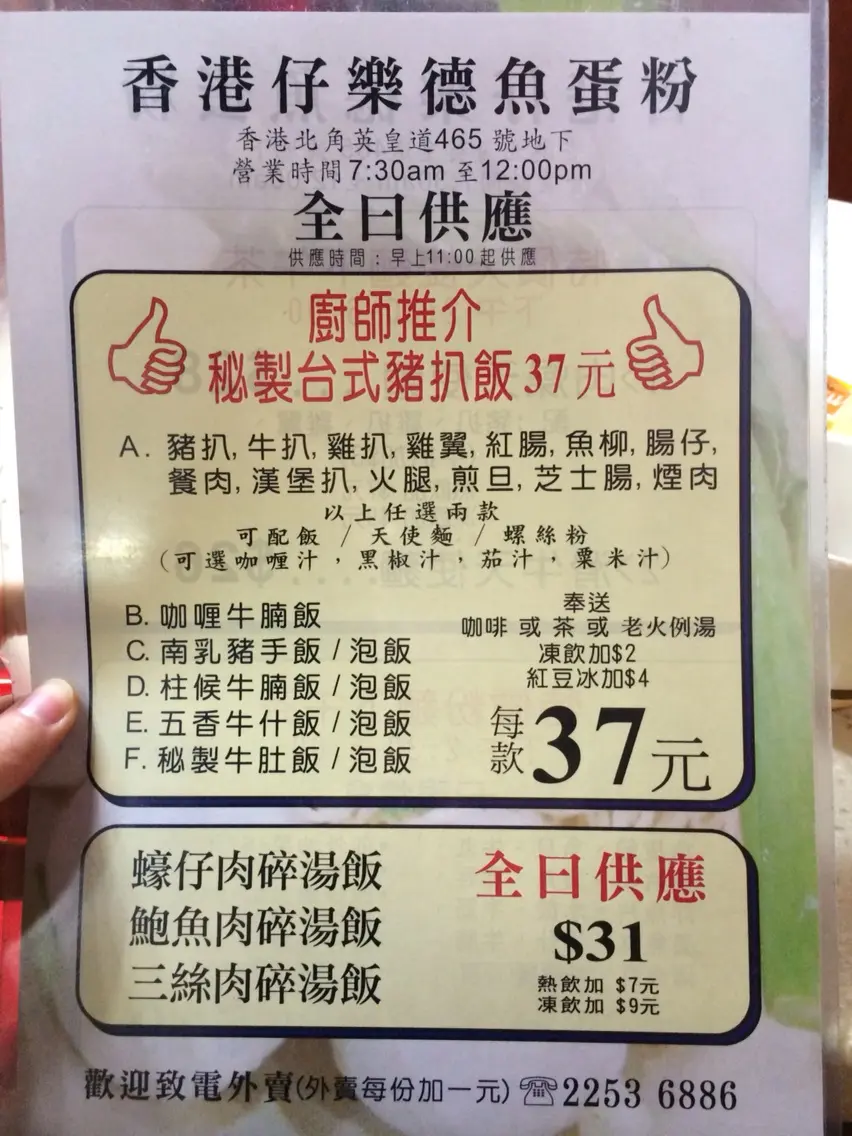 香港仔樂德魚蛋粉
香港北角英皇道465 號地下
營業時間7:30am 至12:00pm
全日供應
供應時間：早上11:00起供應
廚師推介
秘製台式豬扒飯 37 元
A. 豬扒, 牛扒, 雞扒, 雞翼, 紅腸, 魚柳, 腸仔,
餐肉, 漢堡扒, 火腿, 煎旦, 芝士腸, 煙肉
以上任選兩款
可配飯 / 天使麵 / 螺絲粉
(可選咖喱汁，黑椒汁，茄汁，粟米汁)
B. 咖喱牛腩飯
C. 南乳豬手飯 / 泡飯
D. 柱候牛腩飯 / 泡飯
E. 五香牛什飯 / 泡飯
F. 秘製牛肚飯 / 泡飯
奉送
咖啡 或 茶 或 老火例湯
凍飲加$2
紅豆冰加$4
每款37元
蠔仔肉碎湯飯
鮑魚肉碎湯飯
三絲肉碎湯飯
全日供應
$31
熱飲加 $7元
凍飲加 $9元
歡迎致電外賣(外賣每份加一元) ☏2253 6886